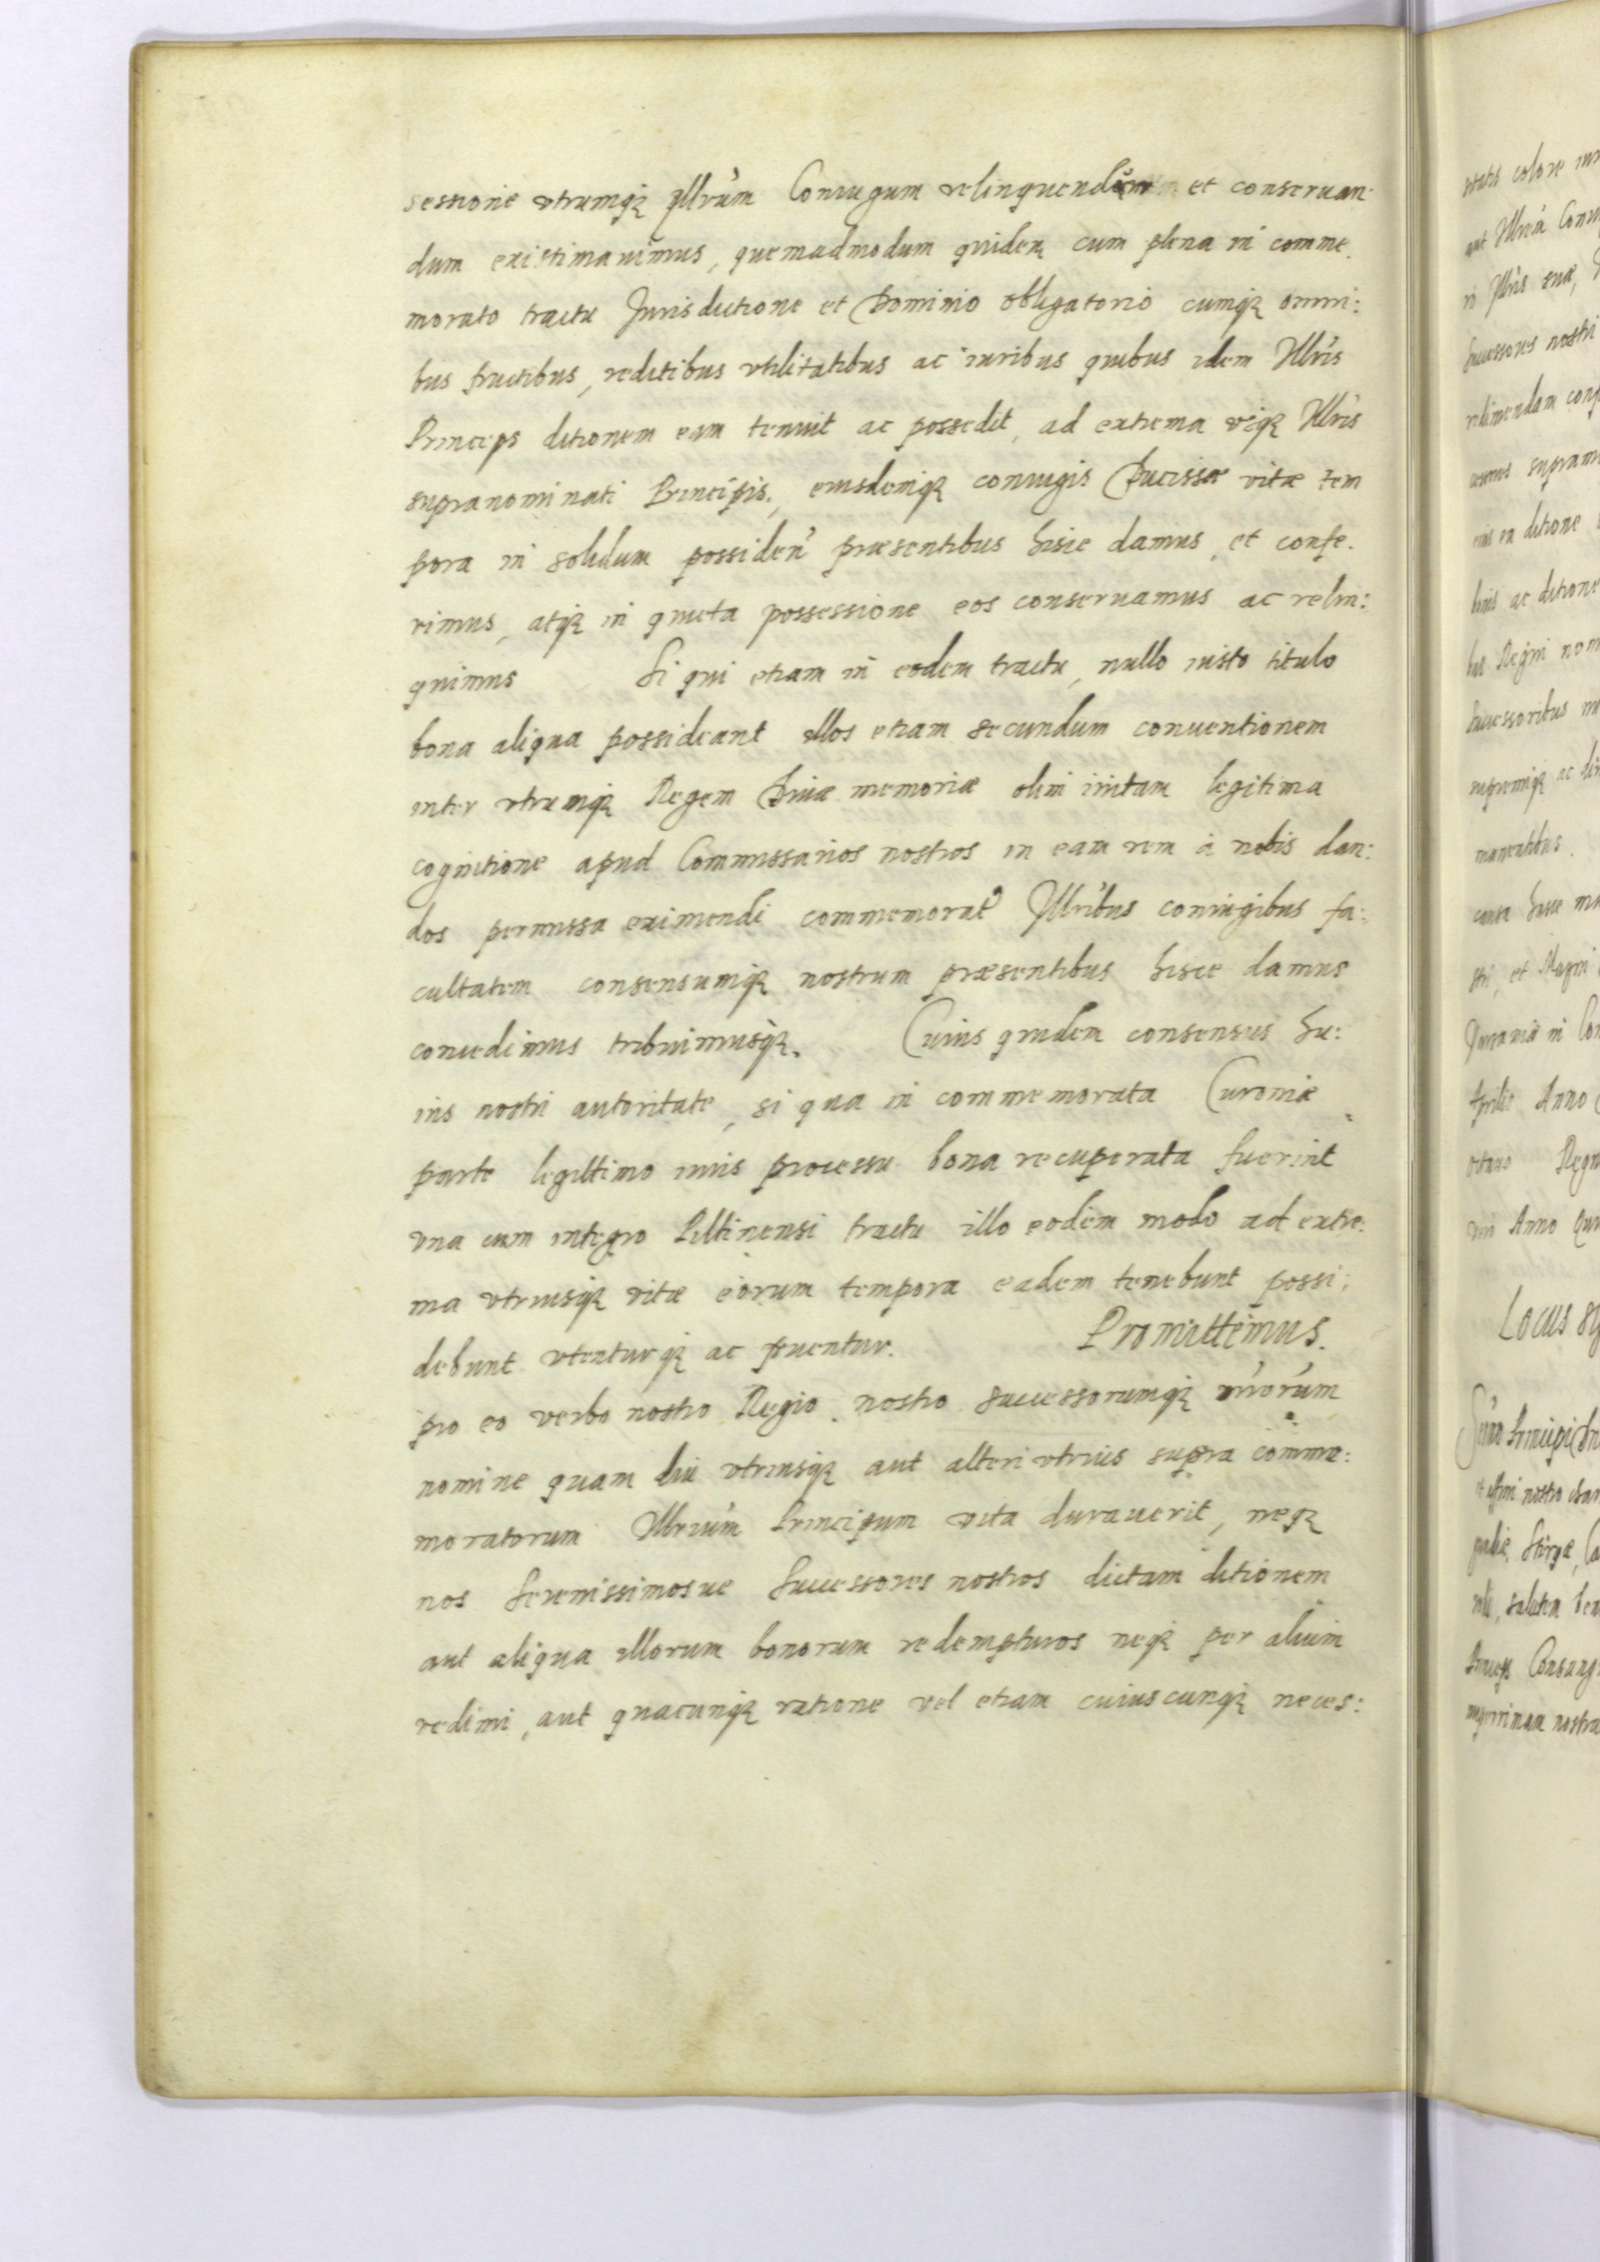 sessione vtrumq3 Illrum Coniugum relinquendum et conseruan
dum existimauimus, quemadmodum quidem cum plena in comme
morato tractu Jurisdictione et Dominio obligatorio cumq3 omni:
bus fructibus, reditibus vtilitatibus ac iuribus quibus idem Illris
Princeps ditionem eam tenuit ac possedit, ad extrema vsq3 Illris
supranominati Principis, eiusdemq3 coniugis Ducissæ vitæ tem
pora in solidum possiden præsentibus hisce damus, et confe.
rimus, atq3 in quieta possessione eos conseruamus ac relin:
quimus Si qui etiam in eodem tractu, nullo iusto titulo
bona aliqua possideant illos etiam secundum conuentionem
inter vtrumq3 Regem Diuæ memoriæ olim initam legitima
cognitione apud Commissarios nostros in eam rem à nobis dan:
dos permissa eximendi commemorat Illribus coniugibus fa:
cultatem consensumq3 nostrum præsentibus hisce damus
concedimus tribuimusq3. Cuius quidem consensus hu:
ius nostri autoritate, si qua in commemorata Curoniæ
parte legittimo iuris processu bona recuperata fuerint
vna cum integro Piltinensi tractu illo eodem modo ad extre:
ma vtriusq3 vitæ eorum tempora eadem tenebunt possi:
debunt vtenturq3 ac fruentur. Promittimus.
pro eo verbo nostro Regio, nostro successorumq3 nrorum
nomine quam diu vtriusq3 aut alteri vtrius supra comme:
moratorum Illrium Principum vita durauerit, neq3
nos Serenissimosue Successores nostros dictam ditionem
aut aliqua illorum bonorum redempturos neq3 per alium
redimi, aut quacunq3 ratione vel etiam cuiuscunq3 neces:
status colore
aut Illra
in Illris suæ,
successores nostri
retinendam
ea ditione
bonis ac ditione
Regni
Successoribus
supremiq3 ac
manentibus.
causa hisce
stri, et Magni
Varsauiæ in
Aprilis Anno
octauo
Anno
Locus
Principi
nostro
Stirpæ,
salutem
Princeps
nostra